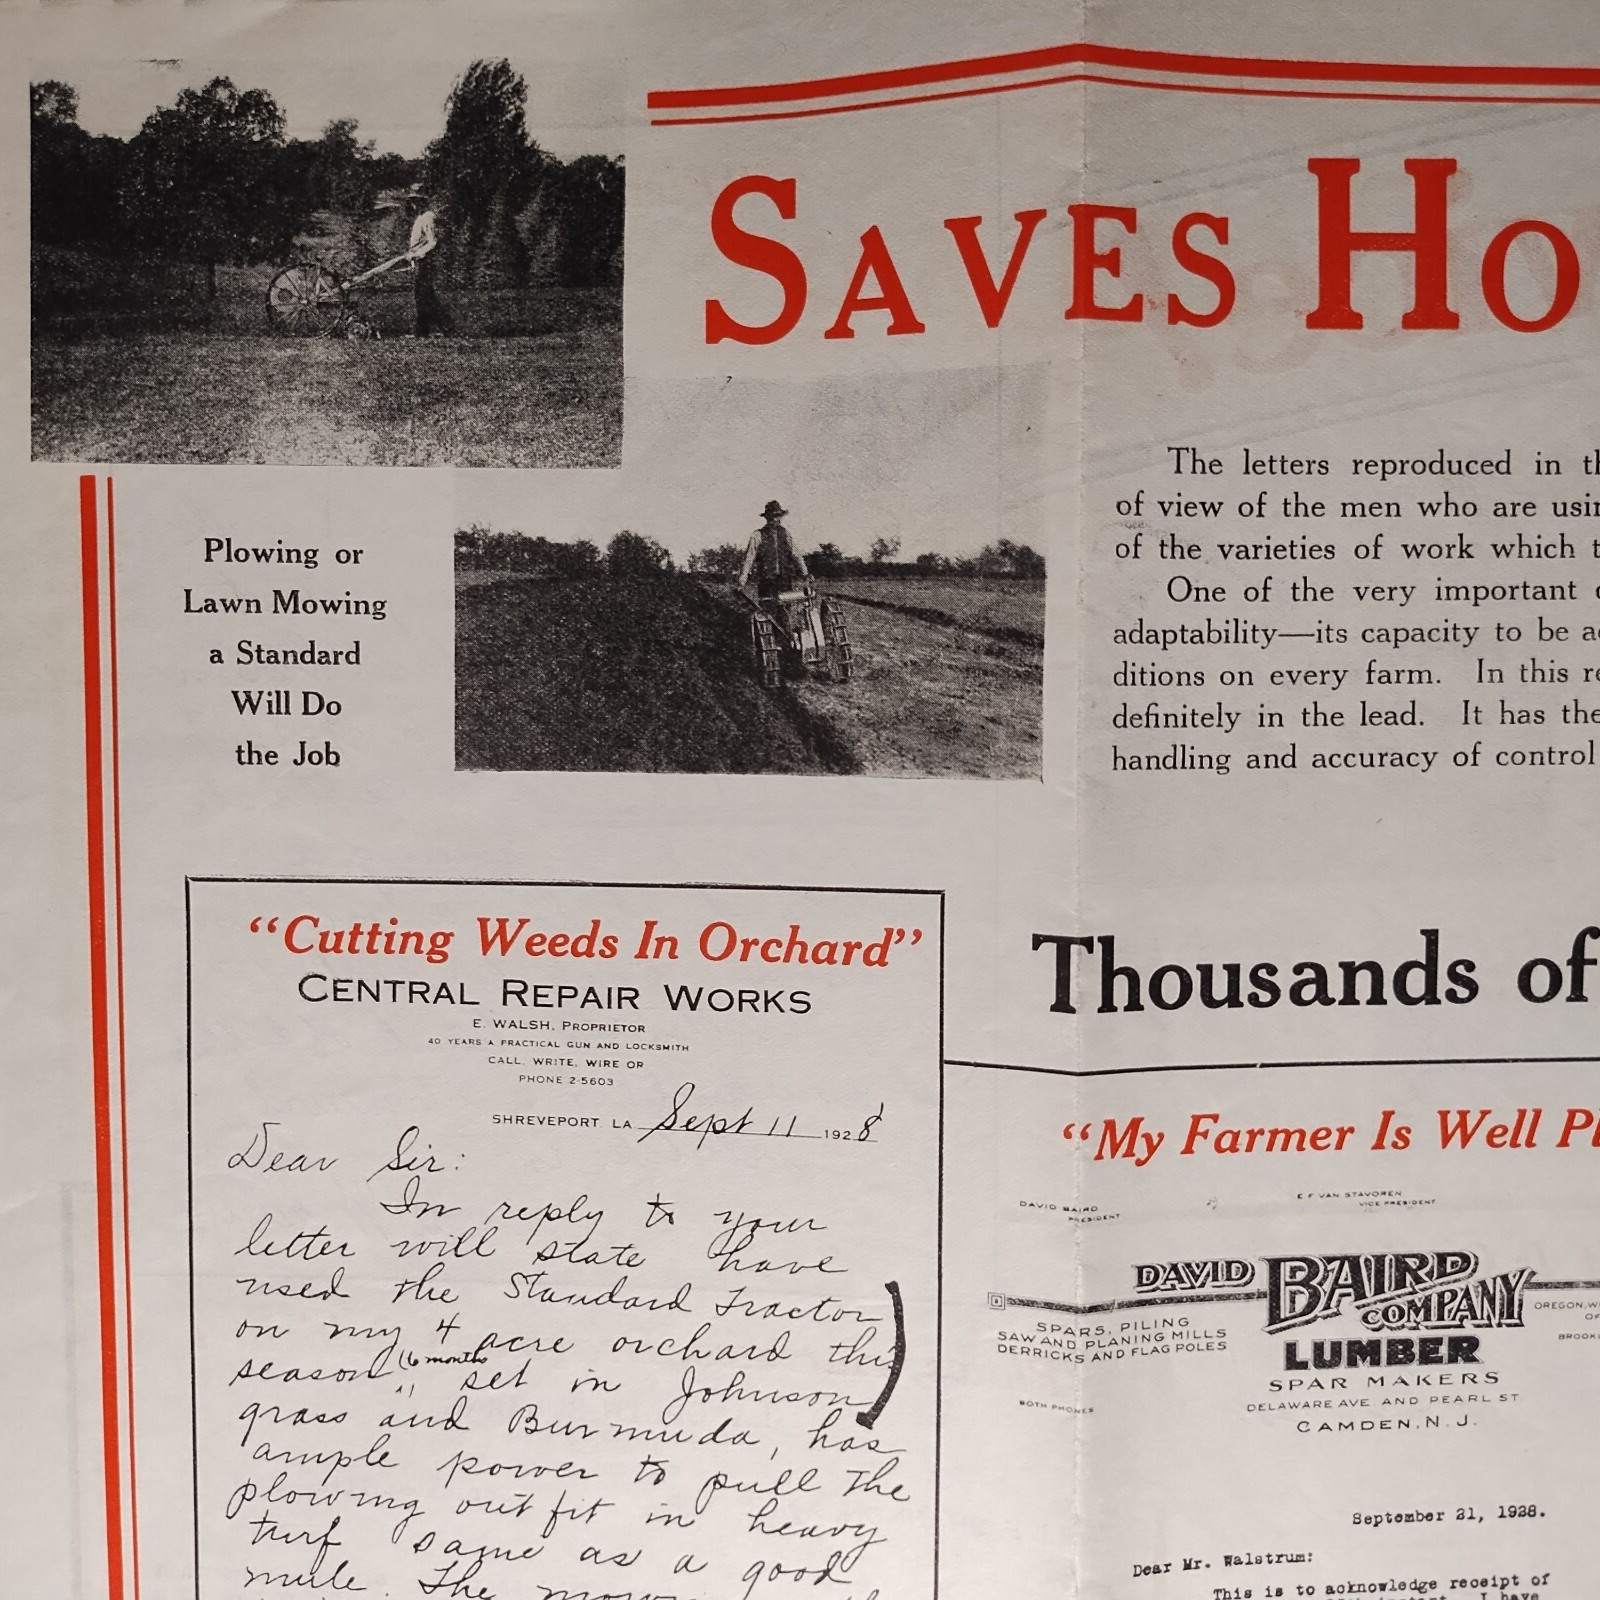 SAVES HO
The letters reproduced in th
of view of the men who are usin
of the varieties of work which t
One of the very important
adaptability—its capacity to be a
ditions on every farm. In this re
definitely in the lead. It has the
handling and accuracy of control
Plowing or
Lawn Mowing
a Standard
Will Do
the Job
"Cutting Weeds In Orchard"
CENTRAL REPAIR WORKS
E. WALSH, PROPRIETOR
40 YEARS A PRACTICAL GUN AND LOCKSMITH
CALL, WRITE, WIRE OR
PHONE 2-5603
SHREVEPORT, LA Sept 11 1928
Dear Sir:
In reply to your
letter will state have
used the Standard Tractor
on my 4 acre orchard this
season (6 months
" set in Johnson
grass and Burmuda, has
ample power to pull the
plowing outfit in heavy
turf same as a good
mule. The
Thousands of
"My Farmer Is Well Pl
DAVID BAIRD
PRESIDENT
E F VAN STAVOREN
VICE PRESIDENT
DAVID BAIRD
COMPANY
SPARS, PILING
SAW AND PLANING MILLS
DERRICKS AND FLAG POLES
OREGON, W
OF
BROOK
LUMBER
SPAR MAKERS
BOTH PHONES
DELAWARE AVE. AND PEARL ST.
CAMDEN, N. J.
September 21, 1928.
Dear Mr. Walstrum:
This is to acknowledge receipt of
I have